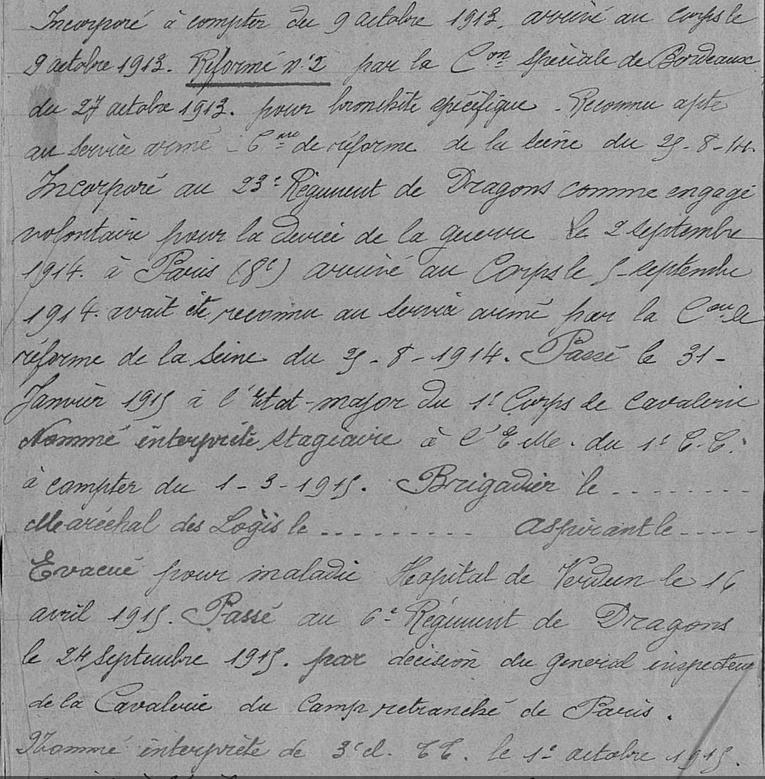 Incorporé à compter du 9 octobre 1913. arrivé au corps le
9 octobre 1913. Réformé n°2 par la Con Spéciale de Bordeaux
du 27 octobre 1913. pour bronchite spécifique. Reconnu apte
au service armé Con de réforme de la Seine du 25-8-14.
Incorporé au 23e Régiment de Dragons comme engagé
volontaire pour la durée de la guerre le 2 Septembre
1914. à Paris (8e) arrivé au Corps le 5 Septembre
1914. avait été reconnu au service armé par la Con de
réforme de la Seine du 25-8-1914. Passé le 31-
Janvier 1915 à l'Etat-major du 1er Corps de Cavalerie
Nommé interprète stagiaire à l'E.M. du 1er C.C.
à compter du 1-3-1915. Brigadier le ........
Maréchal des Logis le .......... aspirant le .....
Evacué pour maladie Hopital de Verdun le 16
avril 1915. Passé au 6e Régiment de Dragons
le 24 Septembre 1915. par décision du Général inspecteur
de la Cavalerie du Camp retranché de Paris.
Nommé interprète de 3e cl. TT. le 1er octobre 1915.